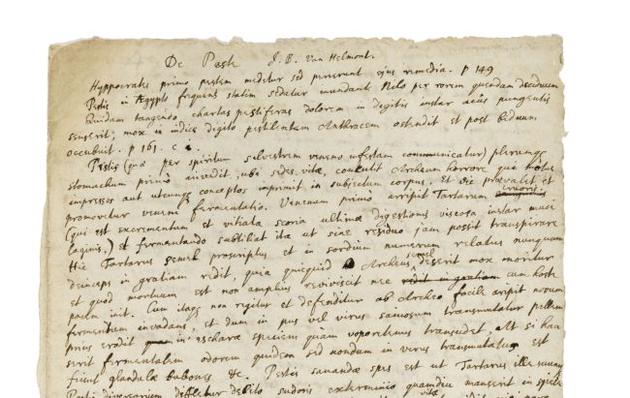 De Peste J. B. Van Helmont.
Hyppocrates primo pestem medetur sed perierunt ejus remedia. p 149
Pestis in Ægypto frequens statim sedatur inundante Nilo per rorem quendam deciduum
Quidam tangendo chartas pestiferas dolorem in digitis instar acûs pungentis
senserit; mox in indice digito pestilentem Anthracem ostendit et post biduum
occubuit. p 161.
Pestis (quæ per spiritum silvestrem veneno infestam communicatur) plerunque
stomachum primò invadit, ubi sedes vitæ, concutit Archeum horrore quo
impressos aut utcunque conceptos imprimit in subjectum corpus. Et sic prævalet et
promovetur veneni fermentatio. Venenum primo arripit Tartarum cruoris
(qui est excrementum et vitiata scoria ultimæ digestionis viscosa instar muci
laginis,) et fermentando subtiliat ita ut sine residuo jam possit transpirare
Hic Tartarus semel proscriptus et in sordium numerum relatus nunquam
deinceps in gratiam redit, quia quicquid Archeus semel deserit mox moritur
et quod mortuum est non amplius reviviscit nec redit in gratiam cum hoste
pacem init. Cum itaque non regitur et defenditur ab Archeo facile arripit novum
fermentum invadens, et dum in pus vel virus saniosum transmutatur pellem
prius erodit in escharæ speciem quam vaporetenus transudet, alt si hau
serit fermentalem odorem quidem sed nondum in virus transmutatus est
fiunt glandulæ bubones &c. Pestis sanandæ spes est ut Tartarus ille
debito sudoris exterminio quamdiu manserit in specie